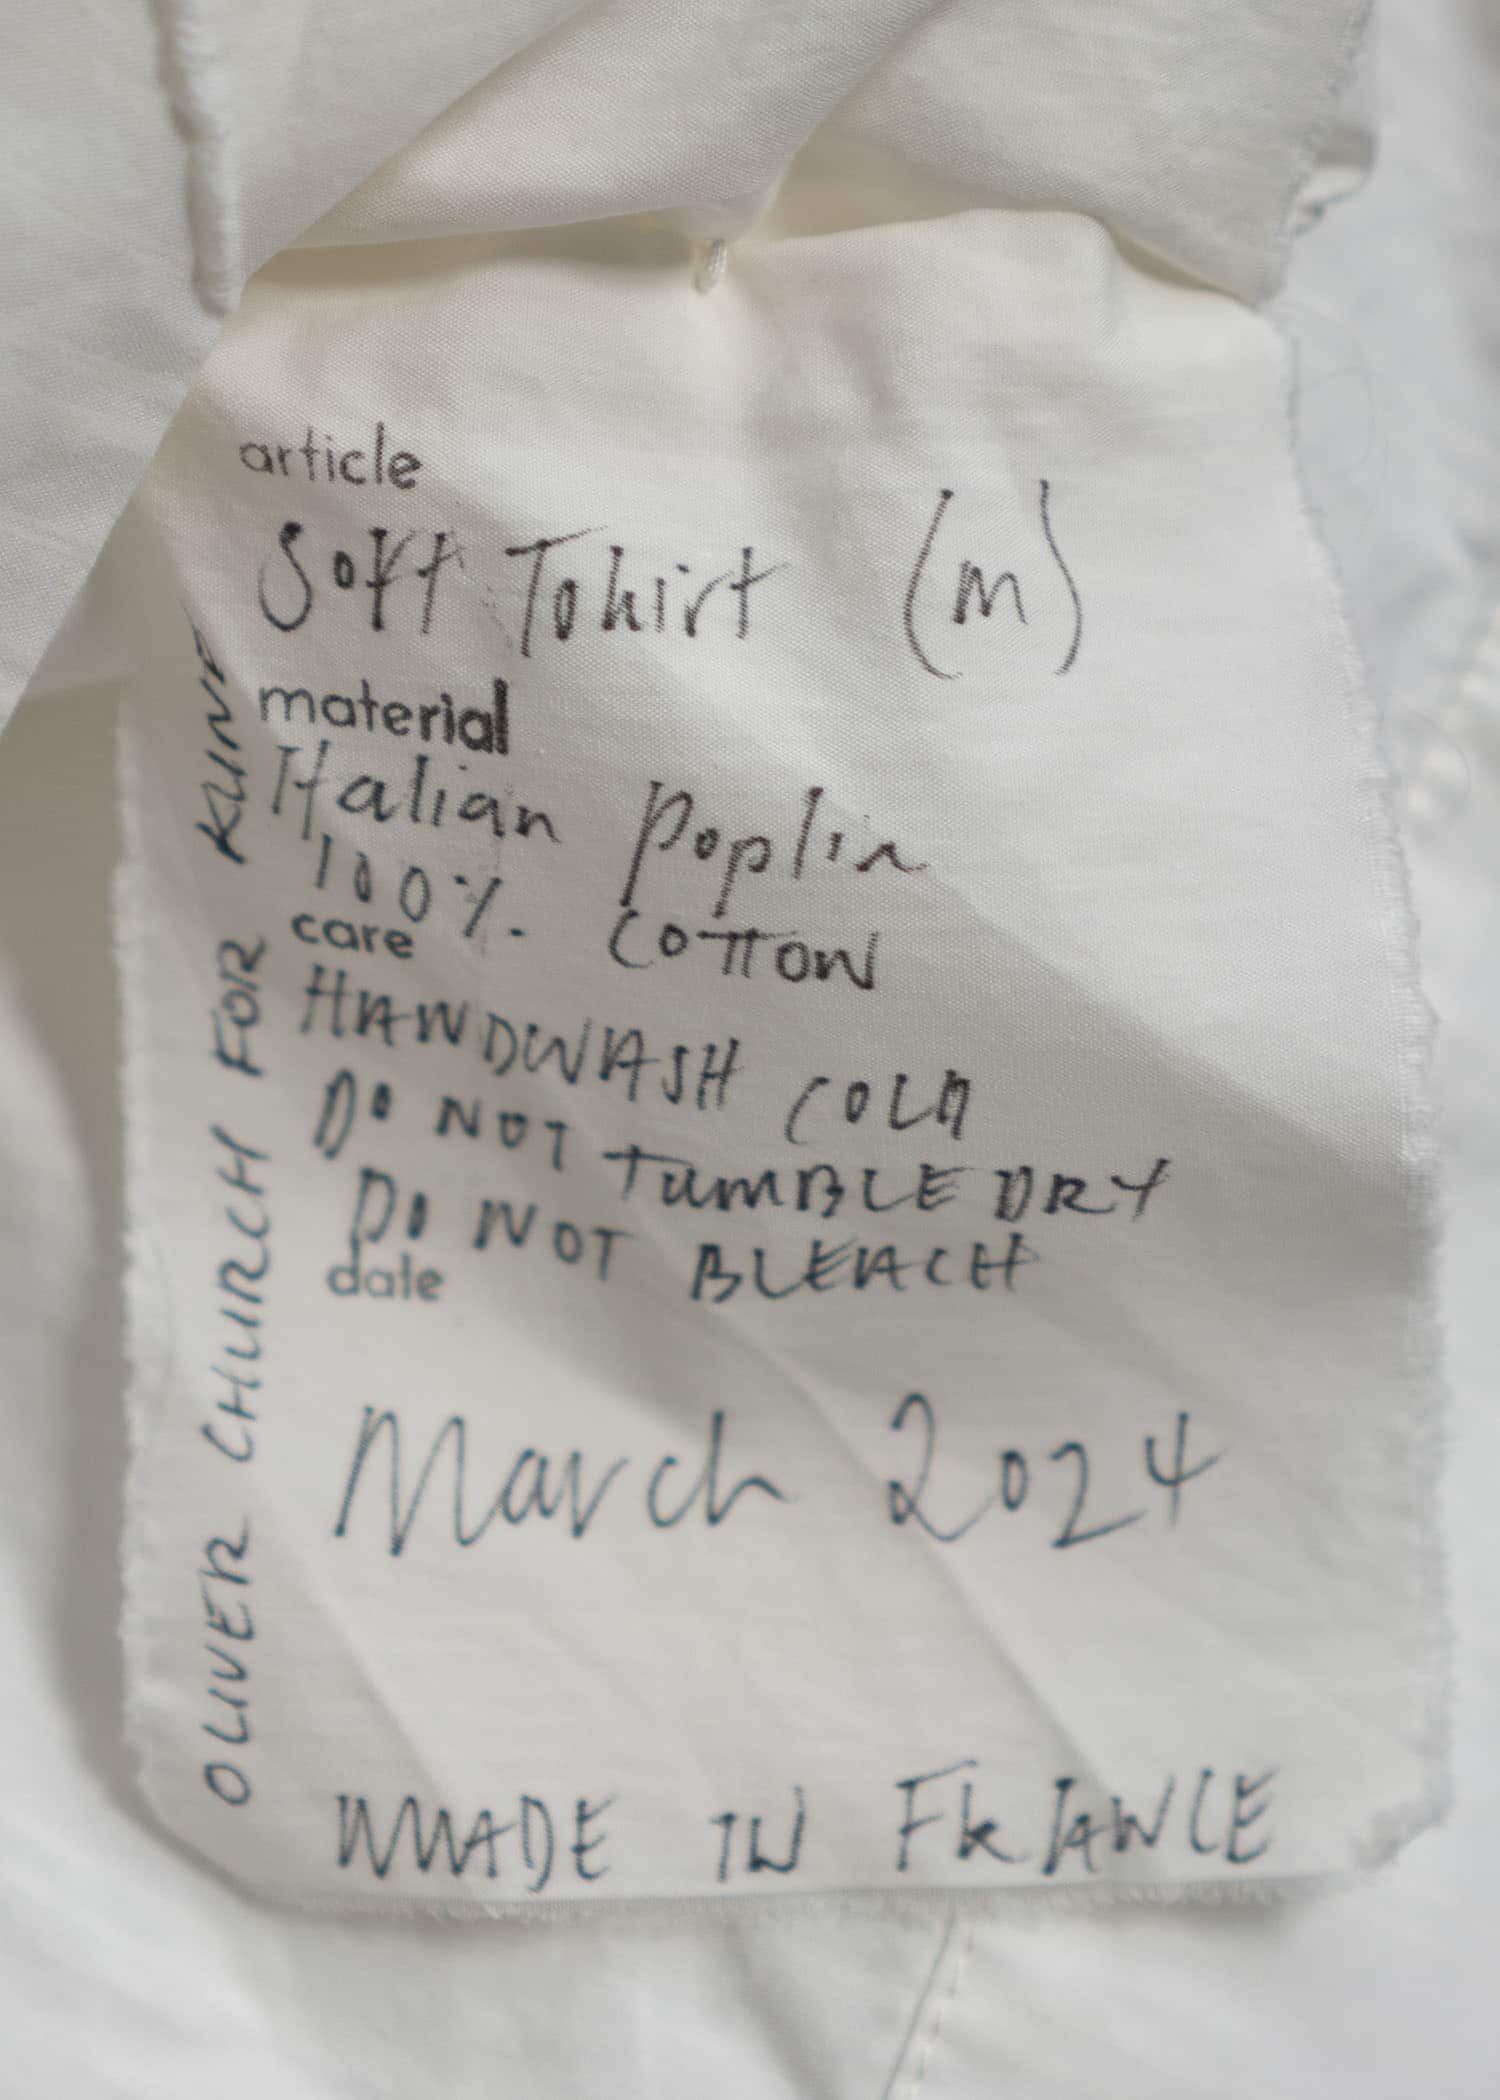 article
Soft Tshirt (m)
material
Italian poplin
100% COTTON
care
HANDWASH COLD
DO NOT TUMBLE DRY
DO NOT BLEACH
date
March 2024
MADE IN FRANCE
OLIVER CHURCH FOR